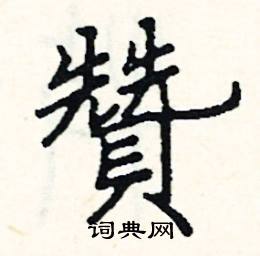 贊
词典网